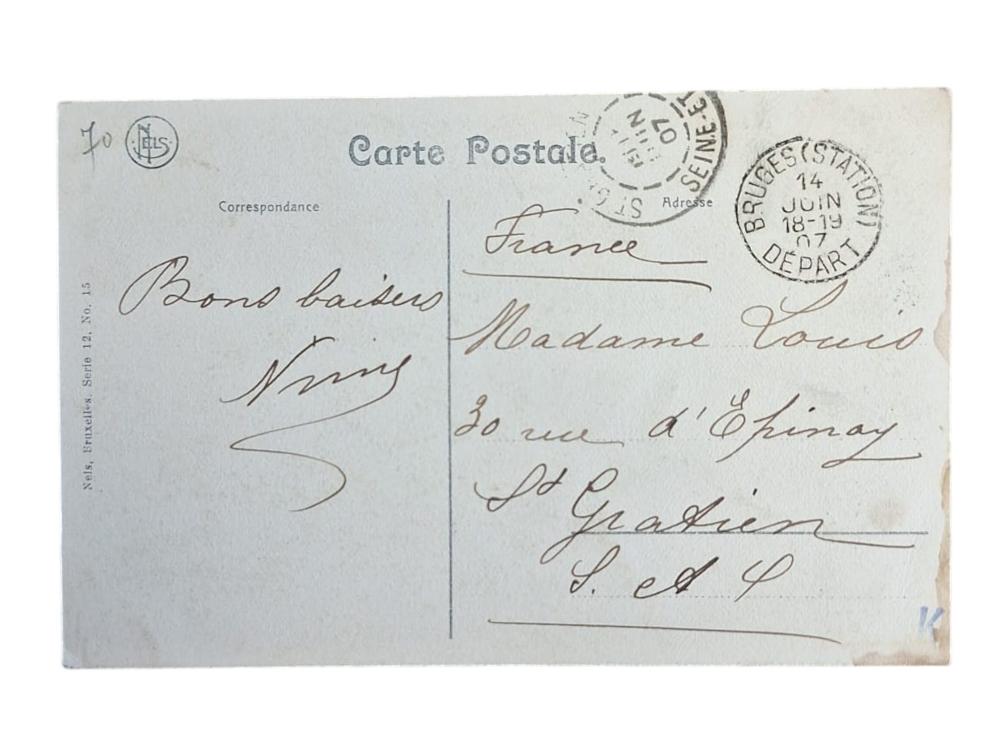 70
NELS
Carte Postale.
Correspondance
Adresse
Nels, Bruxelles. Serie 12, No. 15
Bons baisers
France
Madame Louis
30 rue d'Epinay
St Gratien
S. et O
JUIN
07
SEINE-ET
BRUGES (STATION)
14
JUIN
18-19
07
DÉPART